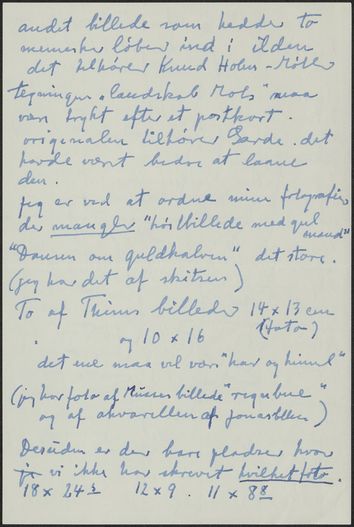 andet billede som hedder to
mennesker løber ind i ilden
det tilhører Knud Holm-Møller
tegningen "landskab Mols" maa
være trykt efter et postkort.
originalen tilhører Garde. det
havde været bedre at laane
den.
jeg er ved at ordne mine fotografier
der mangler "høstbillede med gul
mand"
"Dansen om guldkalven" det store.
(jeg har det af skitsen)
To af Thims billeder 14 x 13 cm
(foto)
og 10 x 16
det ene maa vel være "hav og himmel"
(jeg har foto af Musses billede "regnbue"
og af akvarellen af Jonastillen)
Desuden er der bare pladser hvor
vi ikke har skrevet hvilket foto.
18 x 24½ 12 x 9. 11 x 8⁸